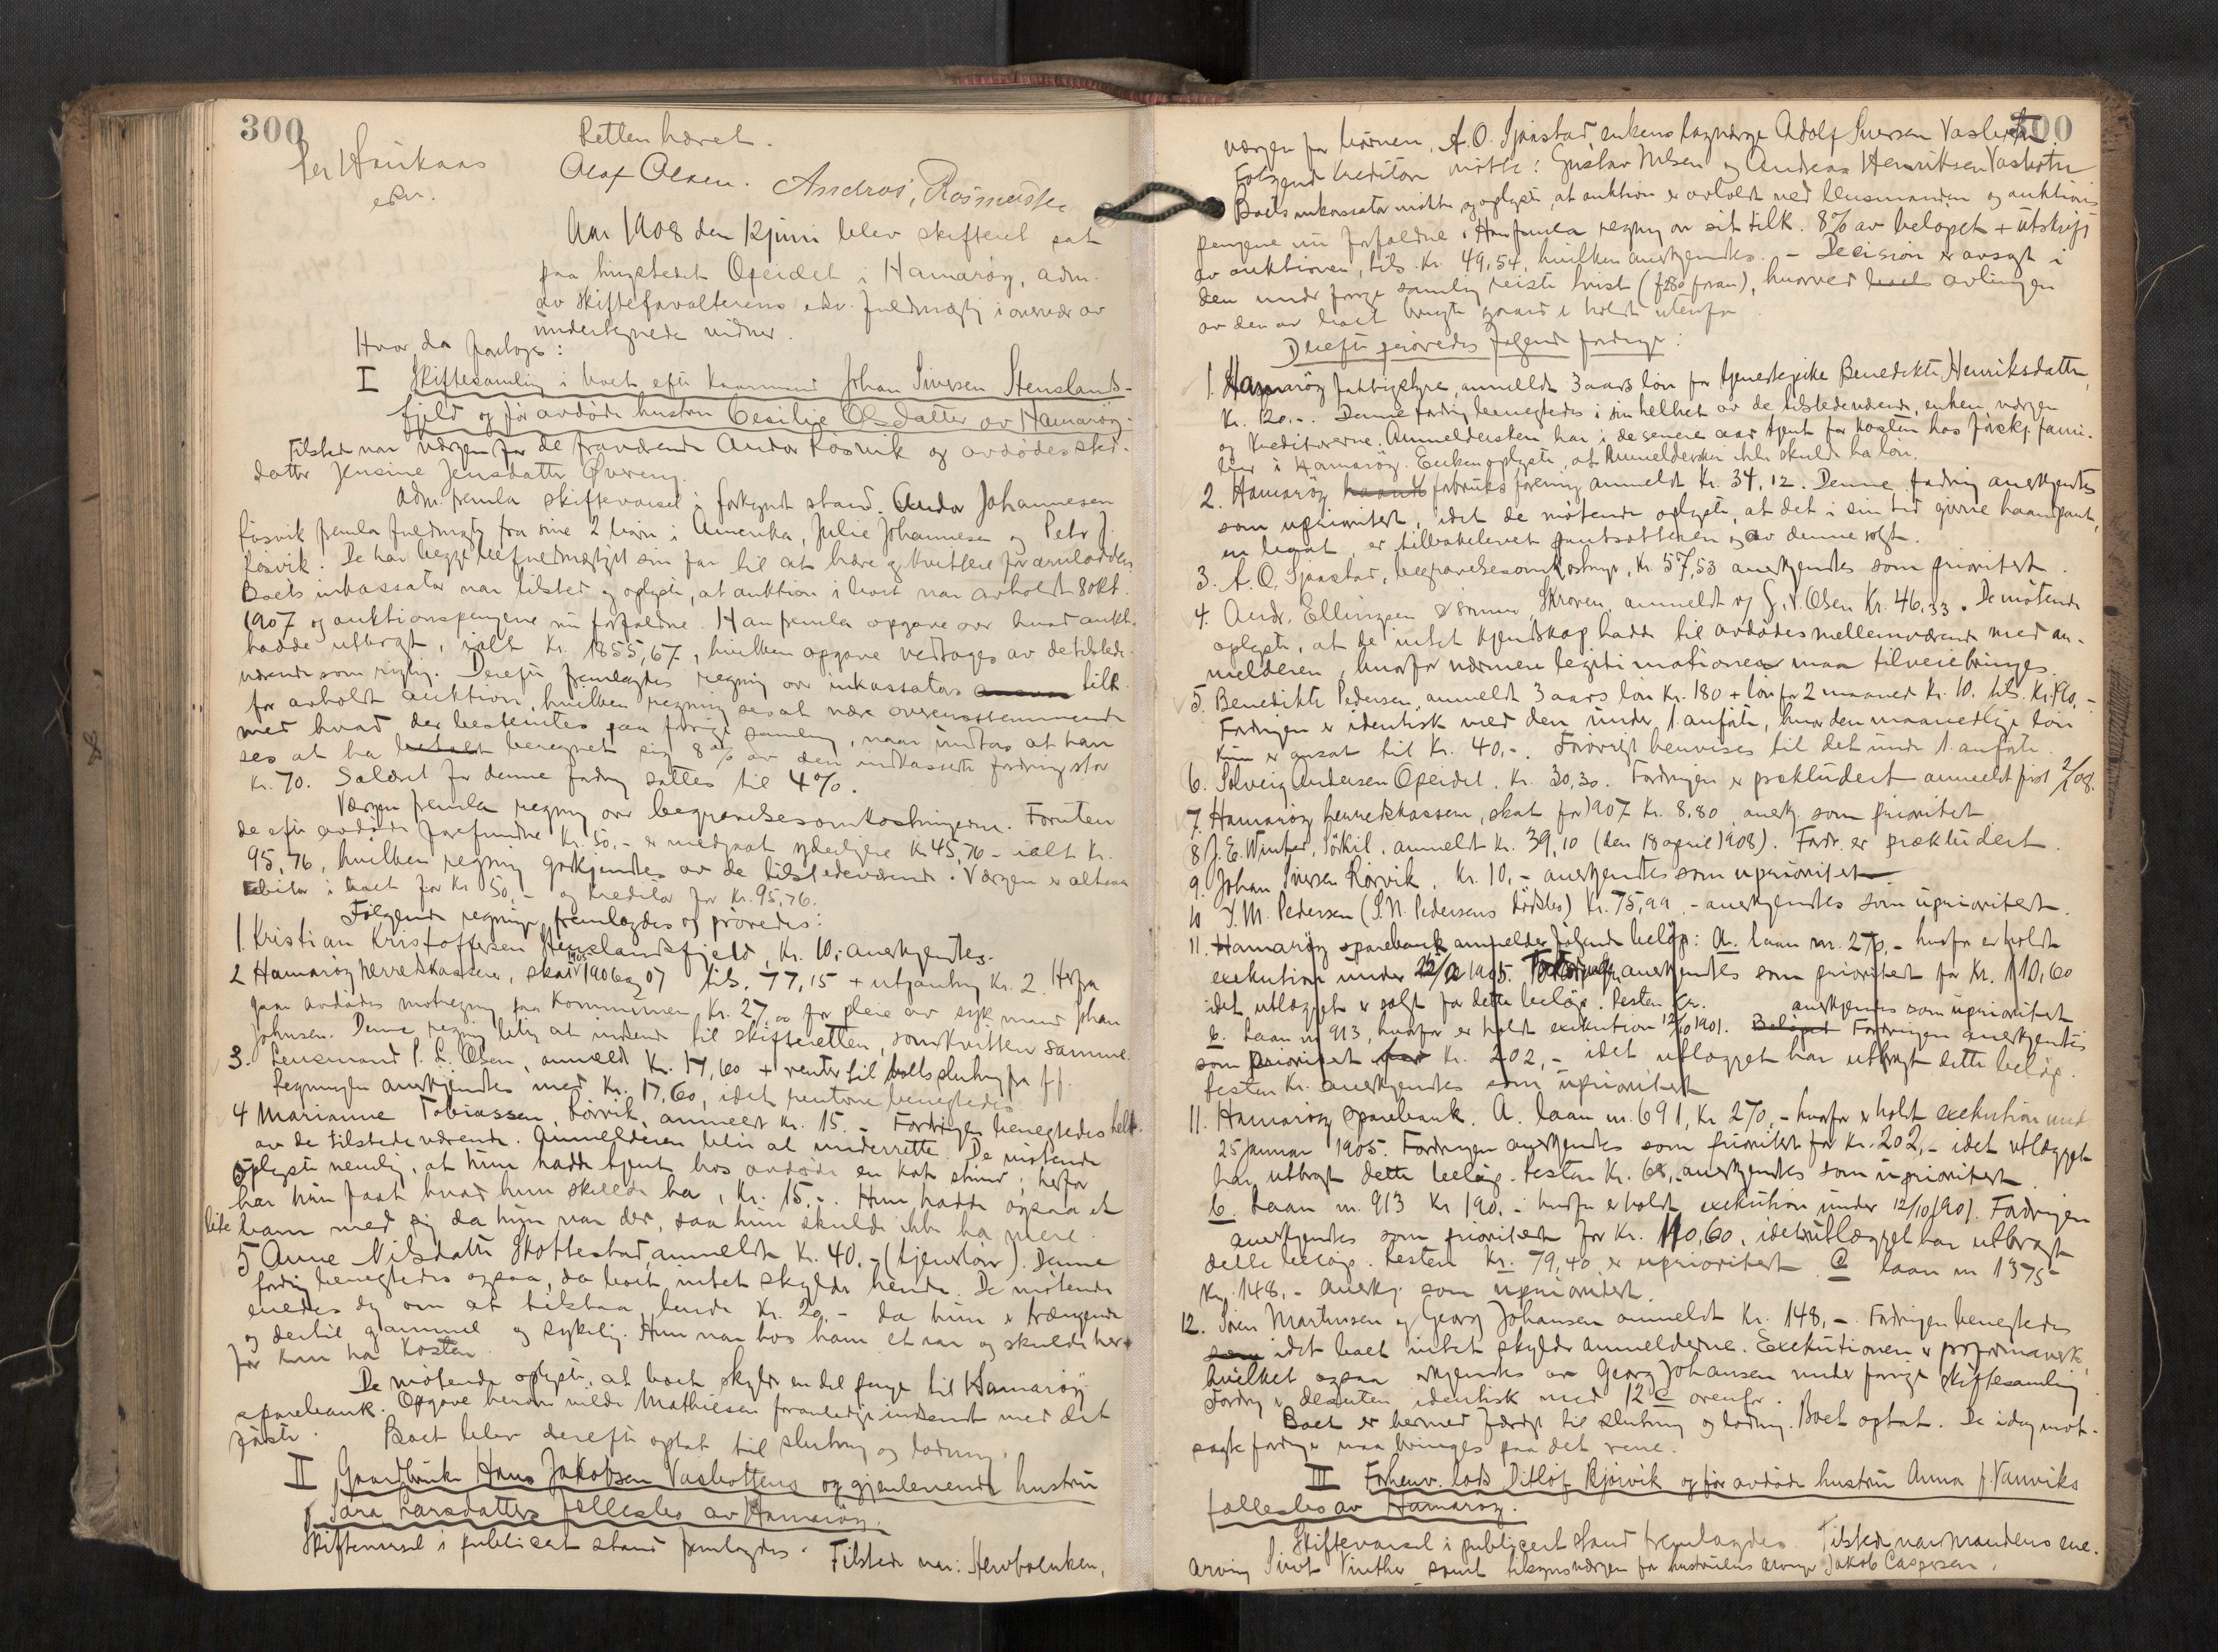 300
Retten hævet.
Per Haukaas
edsv.
Olaf Olsen. Andreas Rasmussen
Aar 1908 den 12 juni blev skifteret sat
paa tingstedet Opeidet i Hamarøy, adm.
av skifteforvalterens edsv. fuldmægtig i overvær av
undertegnede vidner.
Hvor da foretoges:
I Skiftesamling i boet efter kaarmand Johan Iversen Stenslands-
fjeld og før avdøde hustru Cecilie Olsdatter av Hamarøy.
Tilstede var værgen for de fraværende Andor Røsvik og avdødes sted-
datter Jensine Jensdatter Øvereng.
Adm. fremla skiftevarsel i forkyndt stand. Andor Johannesen
Røsvik fremla fuldmagt fra sine 2 børn i Amerika, Julie Johannesen og Peter J.
Røsvik. De har begge befuldmægtiget sin far til at hæve og kvittere for arvelodden.
Boets inkassator var tilstede og oplyste, at auktion i boet var avholdt 8 okt.
1907 og auktionspengene nu forfaldne. Han fremla opgave over hvad aukt.
hadde utbragt, ialt kr. 1855,67, hvilken opgave vedtoges av de tilstede-
værende som rigtig. Derefter fremlagdes regning over inkassators tilk.
for avholdt auktion, hvilken regning sees at være overensstemmende
med hvad der bestemtes paa forrige samling, naar undtas at han
ses at ha beregnet sig 8% av den indkasserte fordring stor
kr. 70. Salæret for denne fordring sattes til 4%.
Værgen fremla regning over begravelsesomkostningerne. Foruten
de efter avdøde forefundne kr. 50,- er medgaat yderligere kr. 45,76 - ialt kr.
95,76, hvilken regning godkjendtes av de tilstedeværende. Værgen er altsaa
debitor i boet for kr 50,- og kreditor for kr. 95,76.
Følgende regninger fremlagdes og prøvedes:
1. Kristian Kristoffersen Stenslandsfjeld, kr. 10,- anerkjendtes.
2 Hamarøy herredskasserer, skat 1905 1906 og 07 tils. 77,15 + utpantning kr. 2. Herfra
gaar avdødes motregning paa kommunen kr. 27,00 for pleie av syk mand Johan
Johnsen. Denne regning blir at indsende til skifteretten, som kvitterer samme.
3. Lensmand P. L. Olsen, anmeldt kr. 17,60 + renter til boets slutning fra ff.
Regningen anerkjendtes med kr. 17,60, idet renterne benegtedes
4 Marianne Tobiassen, Rørvik, anmeldt kr. 15.- Fordringen benegtedes helt
av de tilstedeværende. Anmelderen blir at underrette. De møtende
oplyste nemlig, at hun hadde tjent hos avdøde en kort stund; herfor
har hun faat hvad hun skulde ha, kr. 15,-. Hun hadde ogsaa et
lite barn med sig da hun var der, saa hun skulde ikke ha mere.
5 Anne Nilsdatter Skottestad, anmeldt kr. 40,- (tjenstløn). Denne
fordring benegtedes ogsaa, da boet intet skylder hende. De møtende
enedes dog om at tilstaa hende kr. 20,- da hun er trængende
og dertil gammel og sykelig. Hun var hos ham et aar og skulde her-
for kun ha kosten.
De møtende oplyste, at boet skylder en del penge til Hamarøy
sparebank. Opgave herom vilde Mathiesen foranledige indsendt med det
første.
Boet blev derefter optat til slutning og lodning.
II Gaardbruker Hans Jakobsen Vasbottens og gjenlevende hustru
Sara Larsdatters fællesbo av Hamarøy.
Skiftevarsel i publicert stand fremlagdes. Tilstede var: Stervboenken,
300
værgen for børnen, A. O. Sjønstad, enkens lagværge Adolf Iversen Vasbotn.
Følgende kreditorer møtte: Gustav Nilsen og Andreas Henriksen Vasbotn
Boets inkassator møtte og oplyste, at auktion er avholdt ved lensmanden og auktions-
pengene nu forfaldne. Han fremla regning over sit tilk. 8% av beløpet + utskrift
av auktionen, tils. kr. 49,54, hvilken anerkjendtes. - Decision er avsagt i
den under forrige samling reiste tvist (f. 280 foran), hvorved avlingen
av den av boet brugte gaard er holdt utenfor.
Derefter prøvedes følgende fordringer:
1. Hamarøy fattigstyre, anmeldt 3 aars løn for tjenestepike Benedikte Henriksdatter,
kr. 120,-. Denne fordring benegtedes i sin helhet av de tilstedeværende, enken, værgen
og kreditorerne. Anmeldersken har i de senere aar tjent for kosten hos forskj. fami-
lier i Hamarøy. Enken oplyste, at anmeldersken ikke skulde ha løn.
2. Hamarøy forbruksforening anmeldt kr. 34,12. Denne fordring anerkjendtes
som uprioritert, idet de møtende oplyste, at det i sin tid givne haandpant,
en baat, er tilbakelevert pantsætteren og av denne solgt.
3. A. O. Sjønstad, begravelsesomkostninger, kr. 57,53 anerkjendtes som prioritert.
4. Andr. Ellingsen & sønner Skroven, anmeldt ved S. V. Olsen kr. 46,33. De møtende
oplyste, at de intet kjendskap hadde til avdødes mellemværende med an-
melderen, hvorfor nærmere legitimationer maa tilveiebringes.
5. Benedikte Pedersen, anmeldt 3 aars løn kr. 180 + løn for 2 maaneder kr. 10, tils. kr. 190,-
Fordringen er identisk med den under 1 anførte, hvor den maanedlige løn
kun er ansat til kr. 40,-. Forøvrigt henvises til det under 1 anførte.
6. Solveig Andersen Opeidet, kr. 30,30. Fordringen er prækludert anmeldt først 2/1 08.
7. Hamarøy herredskasserer, skat for 1907 kr. 8,80 anerkj. som prioritert
8 J. E. Winter, Torkil, anmeldt kr. 39,10 (den 18 april 1908). Fordr. er prækludert.
9. Johan Iversen Rørvik, kr. 10,- anerkjendtes som uprioritert
10 I. M. Pedersen (P. N. Pedersens dødsbo) kr. 75,99,- anerkjendtes som uprioritert.
11. Hamarøy sparebank anmelder følgende beløp: a. laan nr. 270,- hvorfor er holdt
exekution under 25/1 1905. Fordringen anerkjendtes som prioritert for kr. 110,60
idet utlægget er solgt for dette beløp. Resten kr. anerkjendtes som uprioritert
b. Laan nr 913, hvorfor er holdt exekution 12/10 1901. Beløpet Fordringen anerkjendtes
som prioritert for kr. 202,- idet utlægget har utbragt dette beløp.
Resten kr. anerkjendtes som uprioritert
11. Hamarøy sparebank. A. laan nr. 691, kr 270,- hvorfor er holdt exekution under
25 januar 1905. Fordringen anerkjendtes som prioritert for kr. 202,- idet utlægget
har utbragt dette beløp. Resten kr. 68,- anerkjendtes som uprioritert.
b. Laan nr. 913 kr 190,- hvorfor er holdt exekution under 12/10 1901. Fordringen
anerkjendtes som prioritert for kr. 110,60, idet utlægget har utbragt
dette beløp. Resten kr. 79,40 er uprioritert. C laan nr 1375
kr. 148,- anerkj. som uprioritert.
12. Søren Martinsen og Georg Johansen anmeldt kr. 148,-. Fordringen benegtedes
som idet boet intet skylder anmelderne. Exekutionen er proforma,
hvilket ogsaa erkjendtes av Georg Johansen under forrige skiftesamling.
Fordring er desuten identisk med 12 c ovenfor.
Boet er hermed færdig til slutning og lodning. Boet optat. De idag mot-
sagte fordringer maa bringes paa det rene.
III Forhenv. lods Ditlof Kjørvik og før avdøde hustru Anna f. Vanviks
fællesbo av Hamarøy.
Skiftevarsel i publicert stand fremlagdes. Tilstede var mandens ene-
arving Sivert Vinther samt tilsynsværgen for hustruens arvinger Jakob Caspersen.